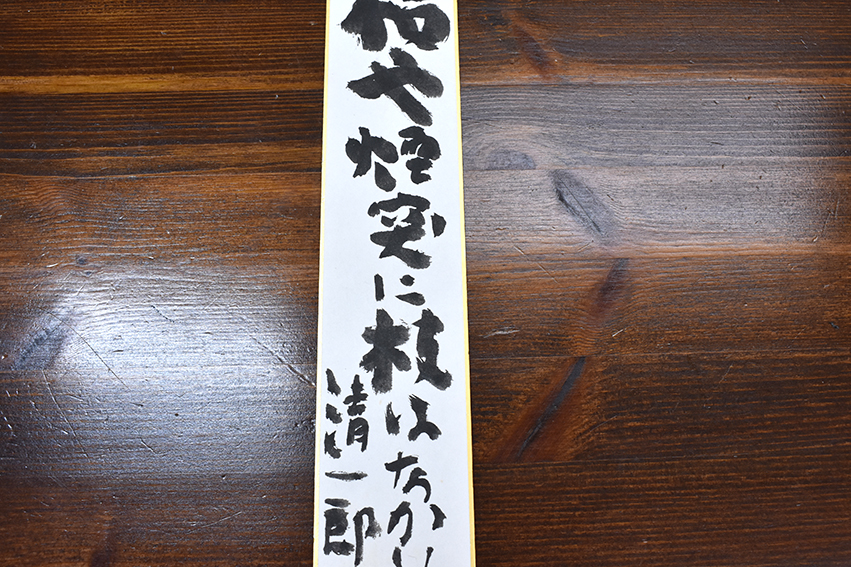 や煙突に枝はなかり
清一郎